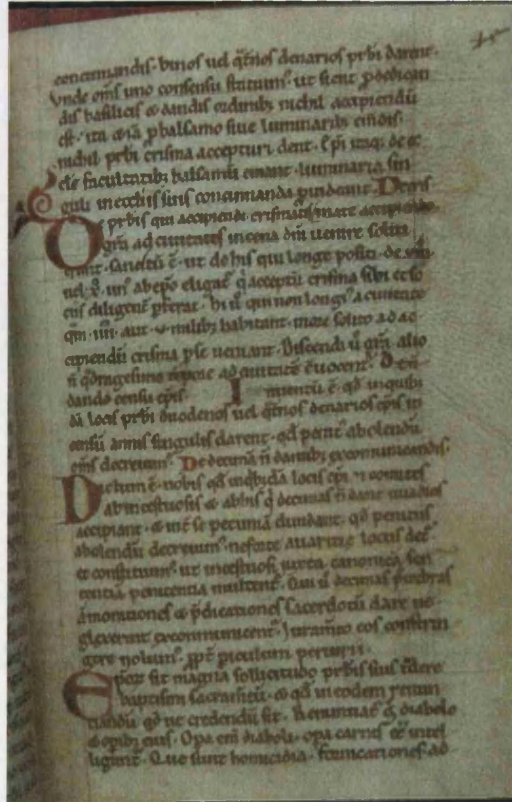 concinnandis · binos uel q̄t̄nos denarios p̄rbi darent ·
Vnde om̄s uno consensu statuim̄ · ut sicut p̄ dedicandis
dis basilicis & dandis ordinib; nichil accipiendū
est · ita &iā p̄ balsamo siue luminarib; em̄dis ·
nichil p̄rbi crisma accepturi dent · Ep̄i itaq; de ęc
clę facultatib; balsamū emant · luminaria sin
guli in ecclis suis concinnanda puideant · De
p̄rbis qui accipiendi crismatis
O ḡra ad ciuitates in cena dn̄i uenire soliti
erant · sancitū ē · ut de his qui longe positi
uel · un̄ ab ep̄o eligat̄ q̄ acceptū crisma sibi et so
ciis diligent̄ p̄ferat · hi ū qui non longi a ciuitate
q̄m · iiii · aut · v · milib; habitant · more solito ad ac
cipiendū crisma p̄se ueniant · Discendi ū ḡra alio
n̄ q̄dragesime tempore ad ciuitatē euocent̄ · De
dando censu ep̄is · I nuentū ē · qd̄ in quib;
dā locis p̄rbi duodenos uel q̄t̄nos denarios ep̄is in
censū annis singulis darent · qd̄ penit̄ abolendū
om̄s decreuim̄ · De decima n̄ dantib; excommunicandis ·
D ictum ē · nobis qd̄ in q̄busdā locis ep̄i & comites
ab incestuosis & ab his q̄ decimas n̄ dant wadios
accipiant · & int̄ se pecuniā diuidant · qd̄ penitus
abolendū decreuim̄ · ne forte auaritię locus det̄
et constituim̄ · ut incestuosi iuxta canonicā sen
tentiā penitentia multent̄ · Qui ū decimas p̄ crebras
āmonitiones & p̄dicationes sacerdotū dare ne
glexerint excommunicent̄ · Iuram̄to eos constrin
gere nolum̄ · p̄pt̄ piculum periurii ·
E p̄or̄ sit magna sollicitudo p̄rbis suis t̄dere
baptismi sacram̄tū · & qd̄ in eodem renun
tiandū qd̄ ue credendū sit · Renuntiat̄ g̊ diabolo
& opib; eius · Opa em̄ diaboli · opa carnis ēē intel
ligunt̄ · Que sunt homicidia · fornicationes · ad